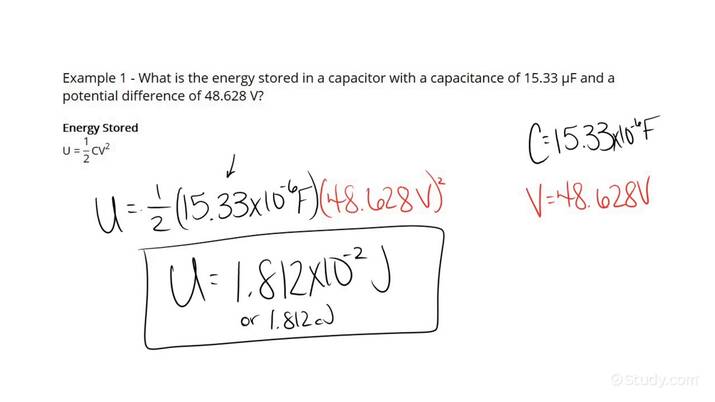 Example 1 - What is the energy stored in a capacitor with a capacitance of 15.33 µF and a
potential difference of 48.628 V?
Energy Stored
U = 1/2 CV²
C=15.33x10⁻⁶F
V=48.628V
U= 1/2 (15.33x10⁻⁶F)(48.628V)²
U= 1.812x10⁻² J
or 1.812cJ
©Study.com